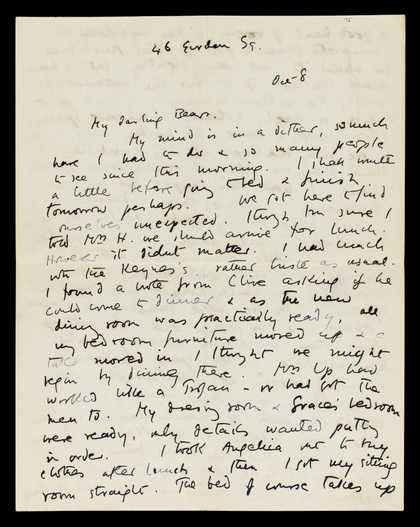 46 Gordon Sq.
Oct 8
My darling Bear.
My mind is in a dither, so much
have I had to do & so many people
to see since this morning. I shall write
a little before going to bed & finish
tomorrow perhaps. We got here to find
ourselves unexpected. though I'm sure I
told Mrs H. we should arrive for lunch.
However it didnt matter. I had lunch
with the Keynes's rather triste as usual.
I found a note from Clive asking if he
could come to dinner & as the new
dining room was practically ready, all
my bedroom furniture moved up & a
table moved in I thought we might
begin by dining there. Mrs Up had
worked like a Trojan – or had got the
men to. My dressing room & Grace's bedroom
were ready, only details wanted putting
in order. I took Angelica out to buy
clothes after lunch & then I got my sitting
room straight. The bed of course takes up